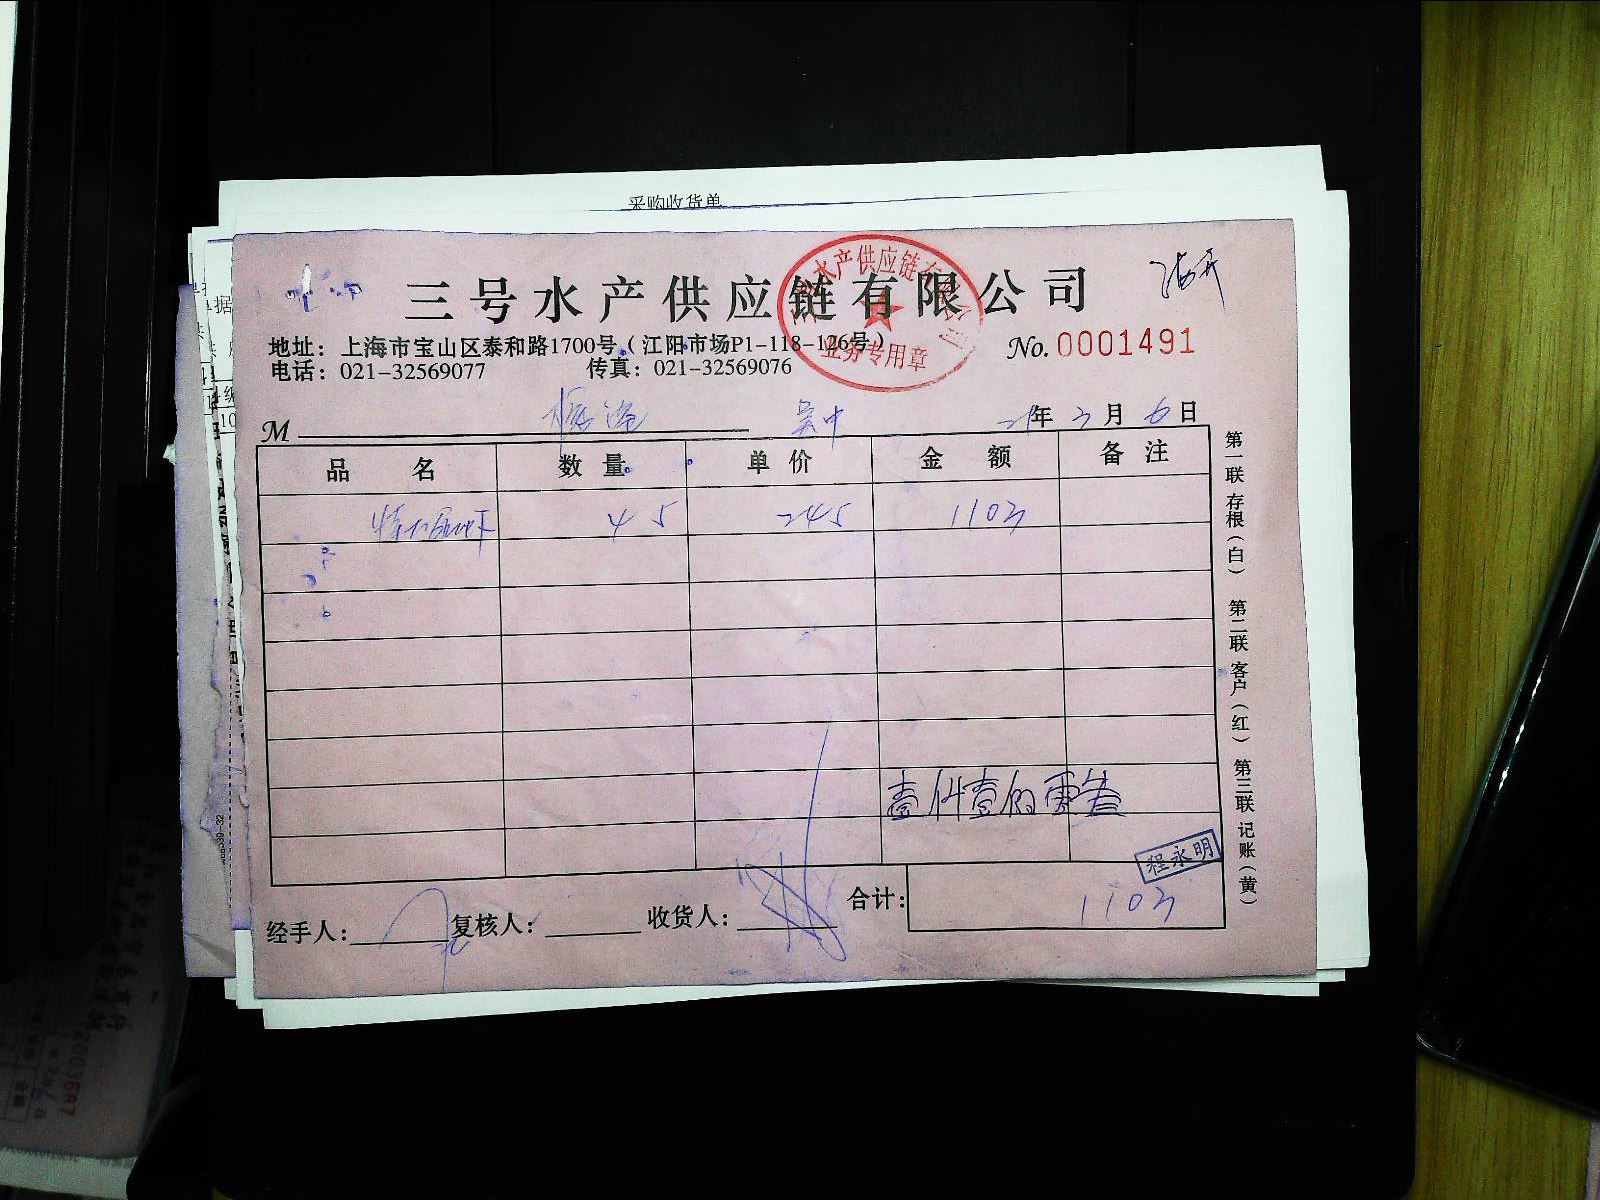 采购收货单
三号水产供应链有限公司
地址：上海市宝山区泰和路1700号（江阳市场P1-118-126号）
No. 0001491
电话：021-32569077 传真：021-32569076
水产供应链
业务专用章
M 吴中 21年3月6日
品名 数量 单价 金额 备注
特大 45 245 1103
壹仟壹佰零叁
程永明
合计： 1103
经手人： 复核人： 收货人：
第一联 存根（白） 第二联 客户（红） 第三联 记账（黄）